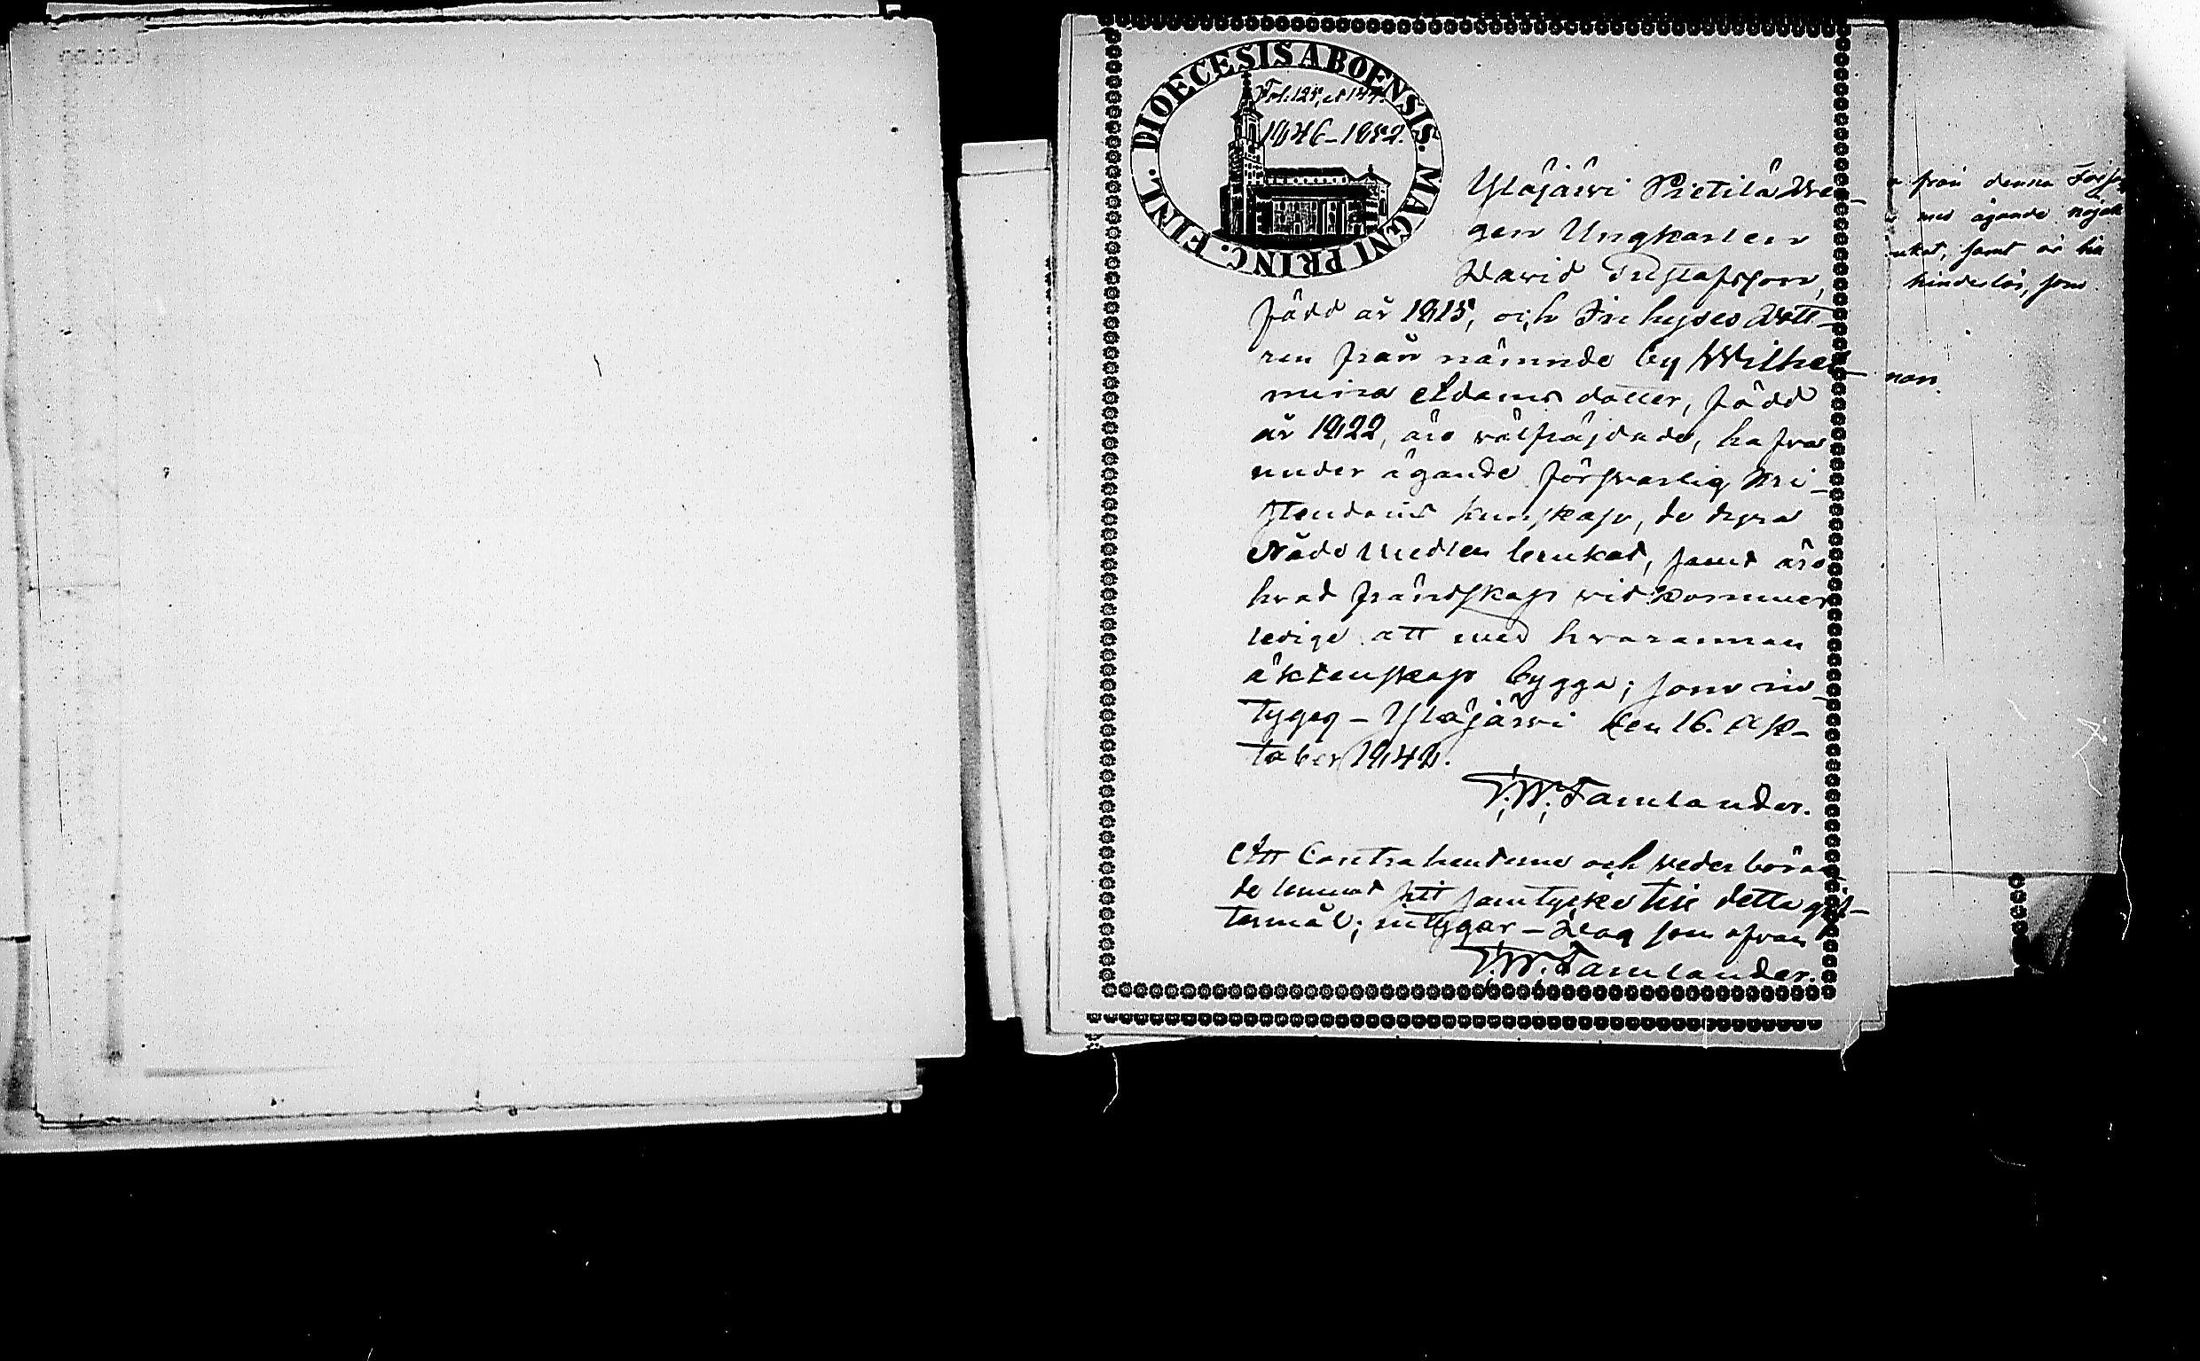 DIOECESIS ABOENSIS. MAGNI PRINC. FINL.
Fol. 125, et 147.
1846–1852.
Ylöjärvi Pietilä Dre-
gen Ungkarlen
David Gustafsson,
född år 1815, och Inhyses dott-
ren från nämnde by Wilhel-
mina Adams dotter, född
år 1822, äro välfräjdade, hafva
under ägande försvarlig Kri-
stendoms kunskap, de dyra
Nådemedlen brukat, samt äro
hvad frändskap vidkommer
ledige att med hvarannan
äktenskap bygga; som in-
tygas – Ylöjärvi den 16. Ok-
tober 1848.
F.W. Tamlander.
Att Contrahenterne och vederböran-
de lemnat sitt samtycke till detta gif-
termål; intygar – Dag som ofvan
F.W. Tamlander.
från denna Förs
med ägande nöjak
ukat, samt är hä
hinderlös, som
man.